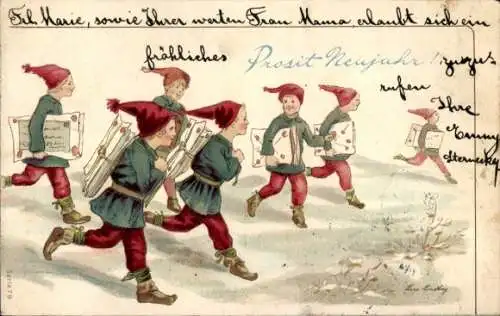 Frl. Marie, sowie Ihrer werten Frau Mama, erlaubt sich ein
fröhliches Prosit Neujahr! zuzu=
rufen
Ihre
Emmy
Sternecky
Serie 79